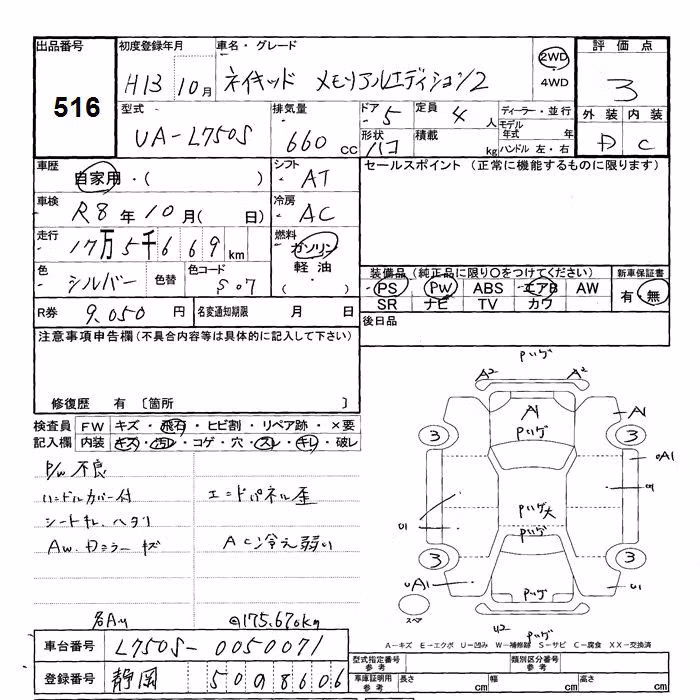 出品番号 初度登録年月 車名・グレード 2WD 評価点
516 H13 10月 ネイキッド メモリアルエディション2 4WD 3
型式 排気量 ドア 5 定員 4人 ディーラー・並行 外装 内装
UA-L750S 660cc 形状 ハコ 積載 kg モデル年式 年 D C
ハンドル 左・右
車歴 自家用・( ) シフト AT セールスポイント (正常に機能するものに限ります)
車検 R8年10月( 日) 冷房 AC
走行 17万5千669km 燃料 ガソリン
軽油
( )
色 シルバー 色替 色コード S07
装備品 (純正品に限り〇をつけてください) 新車保証書
PS PW ABS エアB AW 有・無
SR ナビ TV カワ
R券 9,050円 名変通知期限 月 日 後日品
注意事項申告欄 (不具合内容等は具体的に記入して下さい)
修復歴 有 〔箇所 〕
検査員 FW キズ・飛石・ヒビ割・リペア跡・×要
記入欄 内装 キズ・汚レ・コゲ・穴・スレ・キレ・破レ
P/W 不良
ハンドルカバー付 エンドパネル歪
シートキレ、ヘタリ
AW.Dミラー キズ ACン冷え弱い
@175.670km
Pハゲ
A2 A2
A1 A1
Pハゲ
3 3
UA1
U1
Pハゲ大
U1
Pハゲ
3 3
UA1 U1
Pハゲ
スペア
U2 Pハゲ
A-キズ E-エクボ U-凹み W-補修跡 S-サビ C-腐食 XX-交換済
車台番号 L750S-0050071
登録番号 静岡 50 98606
型式指定番号 参考 類別区分番号 参考
車庫証明用 参考 長さ cm 幅 cm 高さ cm